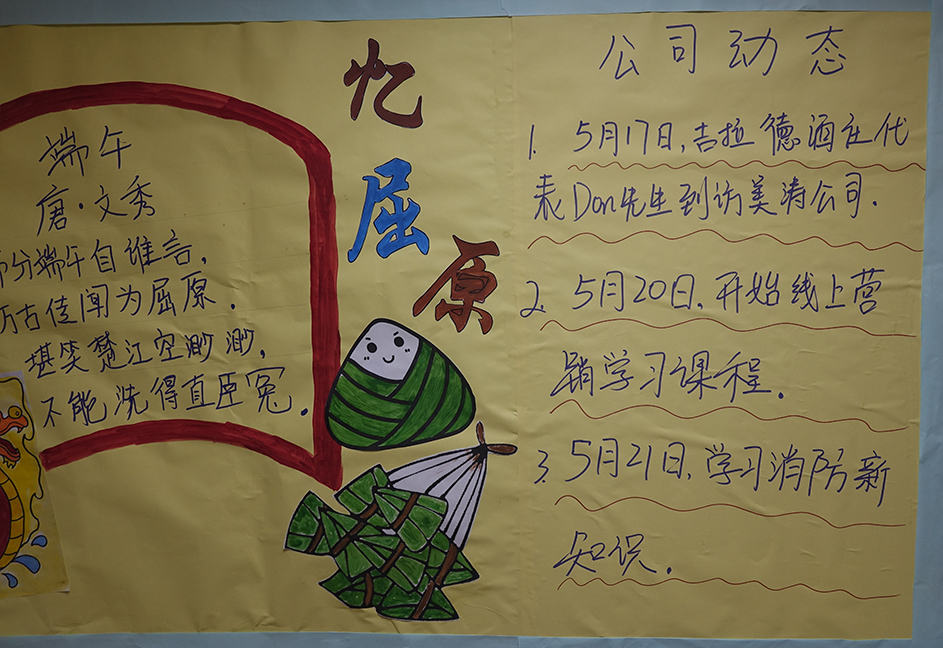 端午
唐·文秀
分端午自谁言，
万古传闻为屈原．
堪笑楚江空渺渺，
不能洗得直臣冤．
忆
屈
原
公司动态
1. 5月17日，吉拉德酒庄代
表Don先生到访美涛公司．
2. 5月20日，开始线上营
销学习课程．
3. 5月21日，学习消防新
知识．